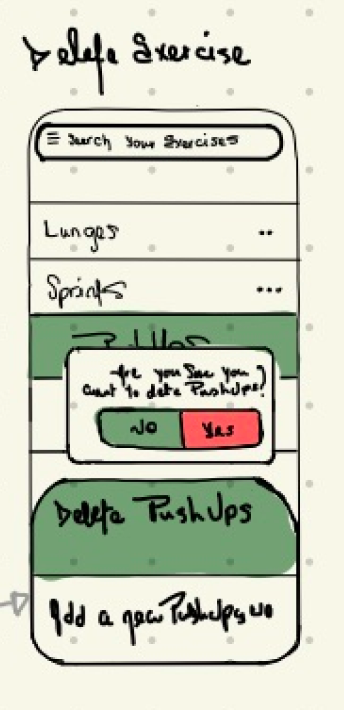 Delete Exercise
Search Your Exercises
Lunges
Sprints
Are you Sure you
want to delete PushUps?
NO Yes
Delete PushUps
Add a new PushUps